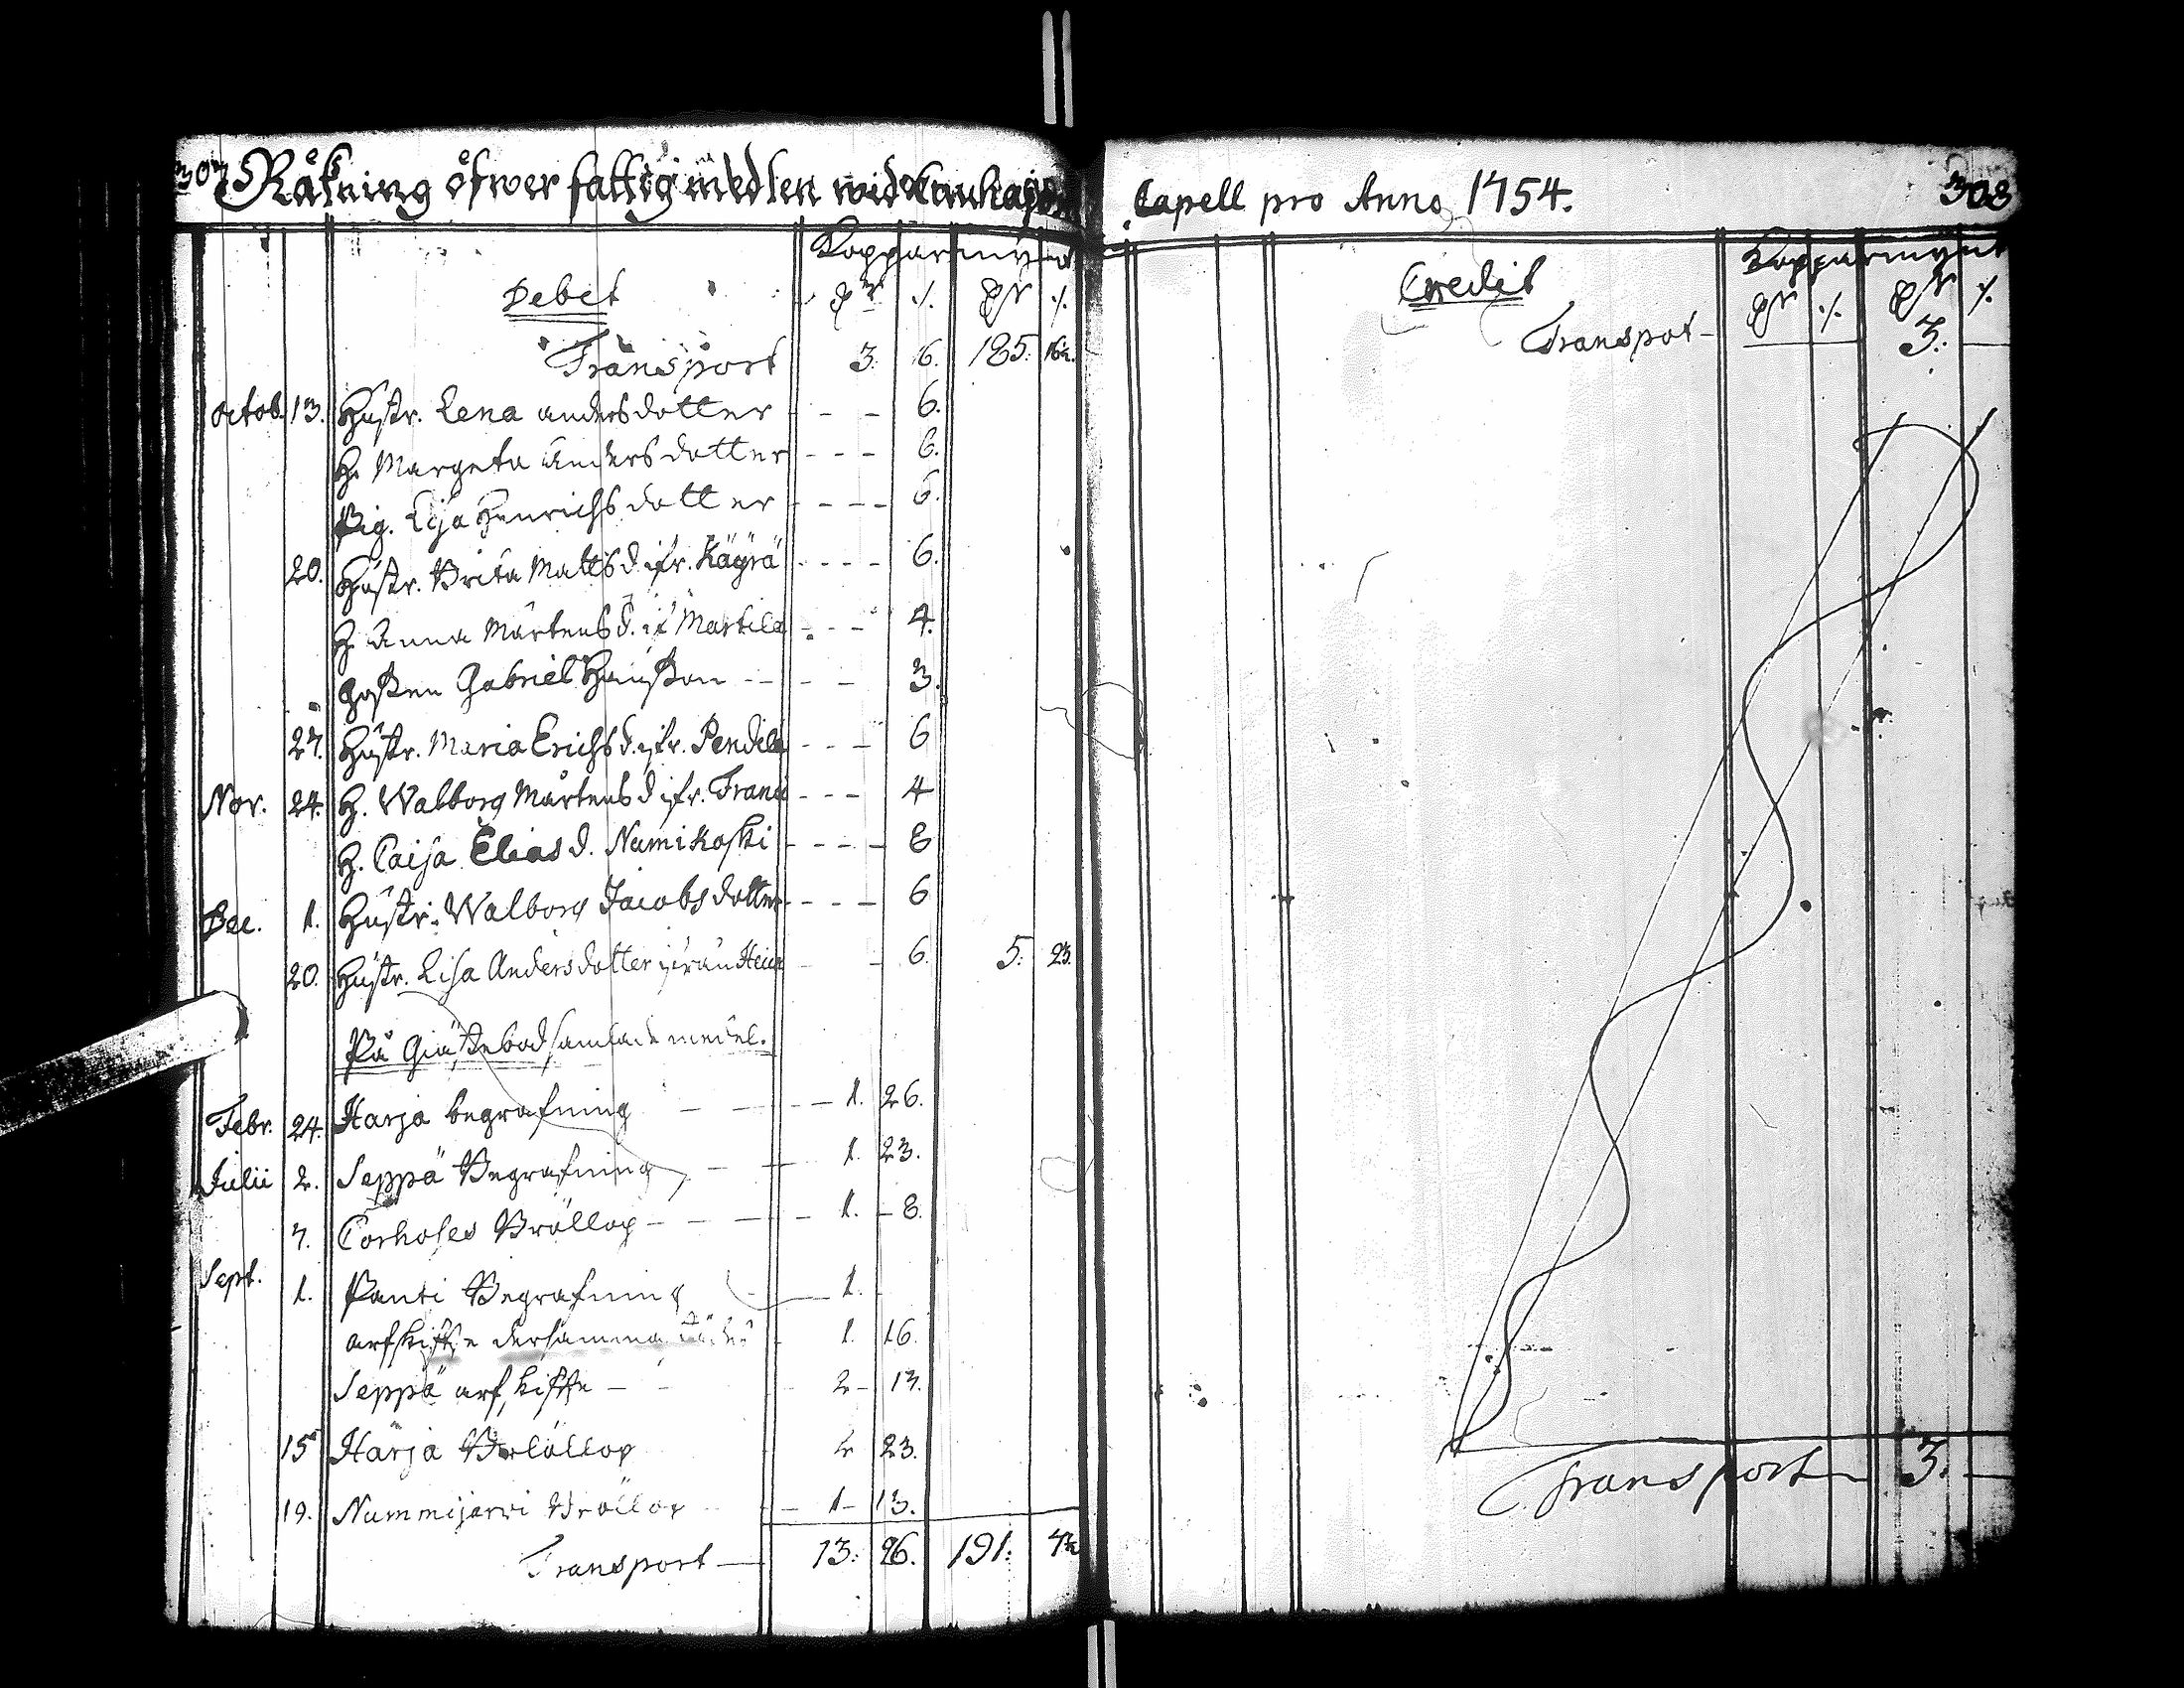 307 Räkning öfwer fattig medlen wid
Kopparmynt
Debet
Transport 3. 6. 185. 16½.
Octob. 13. Hustr. Lena andersdotter - - - 6.
H. Margeta andersdotter - - - 6.
Pig. Lisa Henrichsdotter - - - - 6.
20. Hustr. Brita Mattsd. ifr. Käyrä - - - - 6.
H. Anna Mårtensd. if Martila - - - 4.
Gossen Gabriel Hansson - - - 3.
27. Hustr. Maria Erichsd. ifr. Pendilä - - - 6
Nov. 24. H. Walborg Mårtensd ifr. - - - 4
H. Caisa Elias d. Numikoski - - - - 8
Dec. 1. Hustr. Walborg Jacobsdotter - - - - 6
20. Hustr. Lisa Andersdotter ifrån - - 6. 5. 23.
På Giästebod samlade medel.
Febr. 24. Harja begrafning - - - - 1. 26.
Julii 2. Seppä Begrafning - - 1. 23.
7. Corholes Bröllop - - - - 1. - 8.
Sept. 1. Panti Begrafning - 1.
arfskifte dersamma - 1. 16.
Seppä arfskifte - - 2 - 13.
15 Harja Bröllop 2 23.
19. Nummijarvi Bröllop - 1 - 13.
Transport - 13. 26. 191. 7½
Capell pro Anno 1754. 308
Kopparmynt
Credit
Transpot - 3.
Transport - 3.